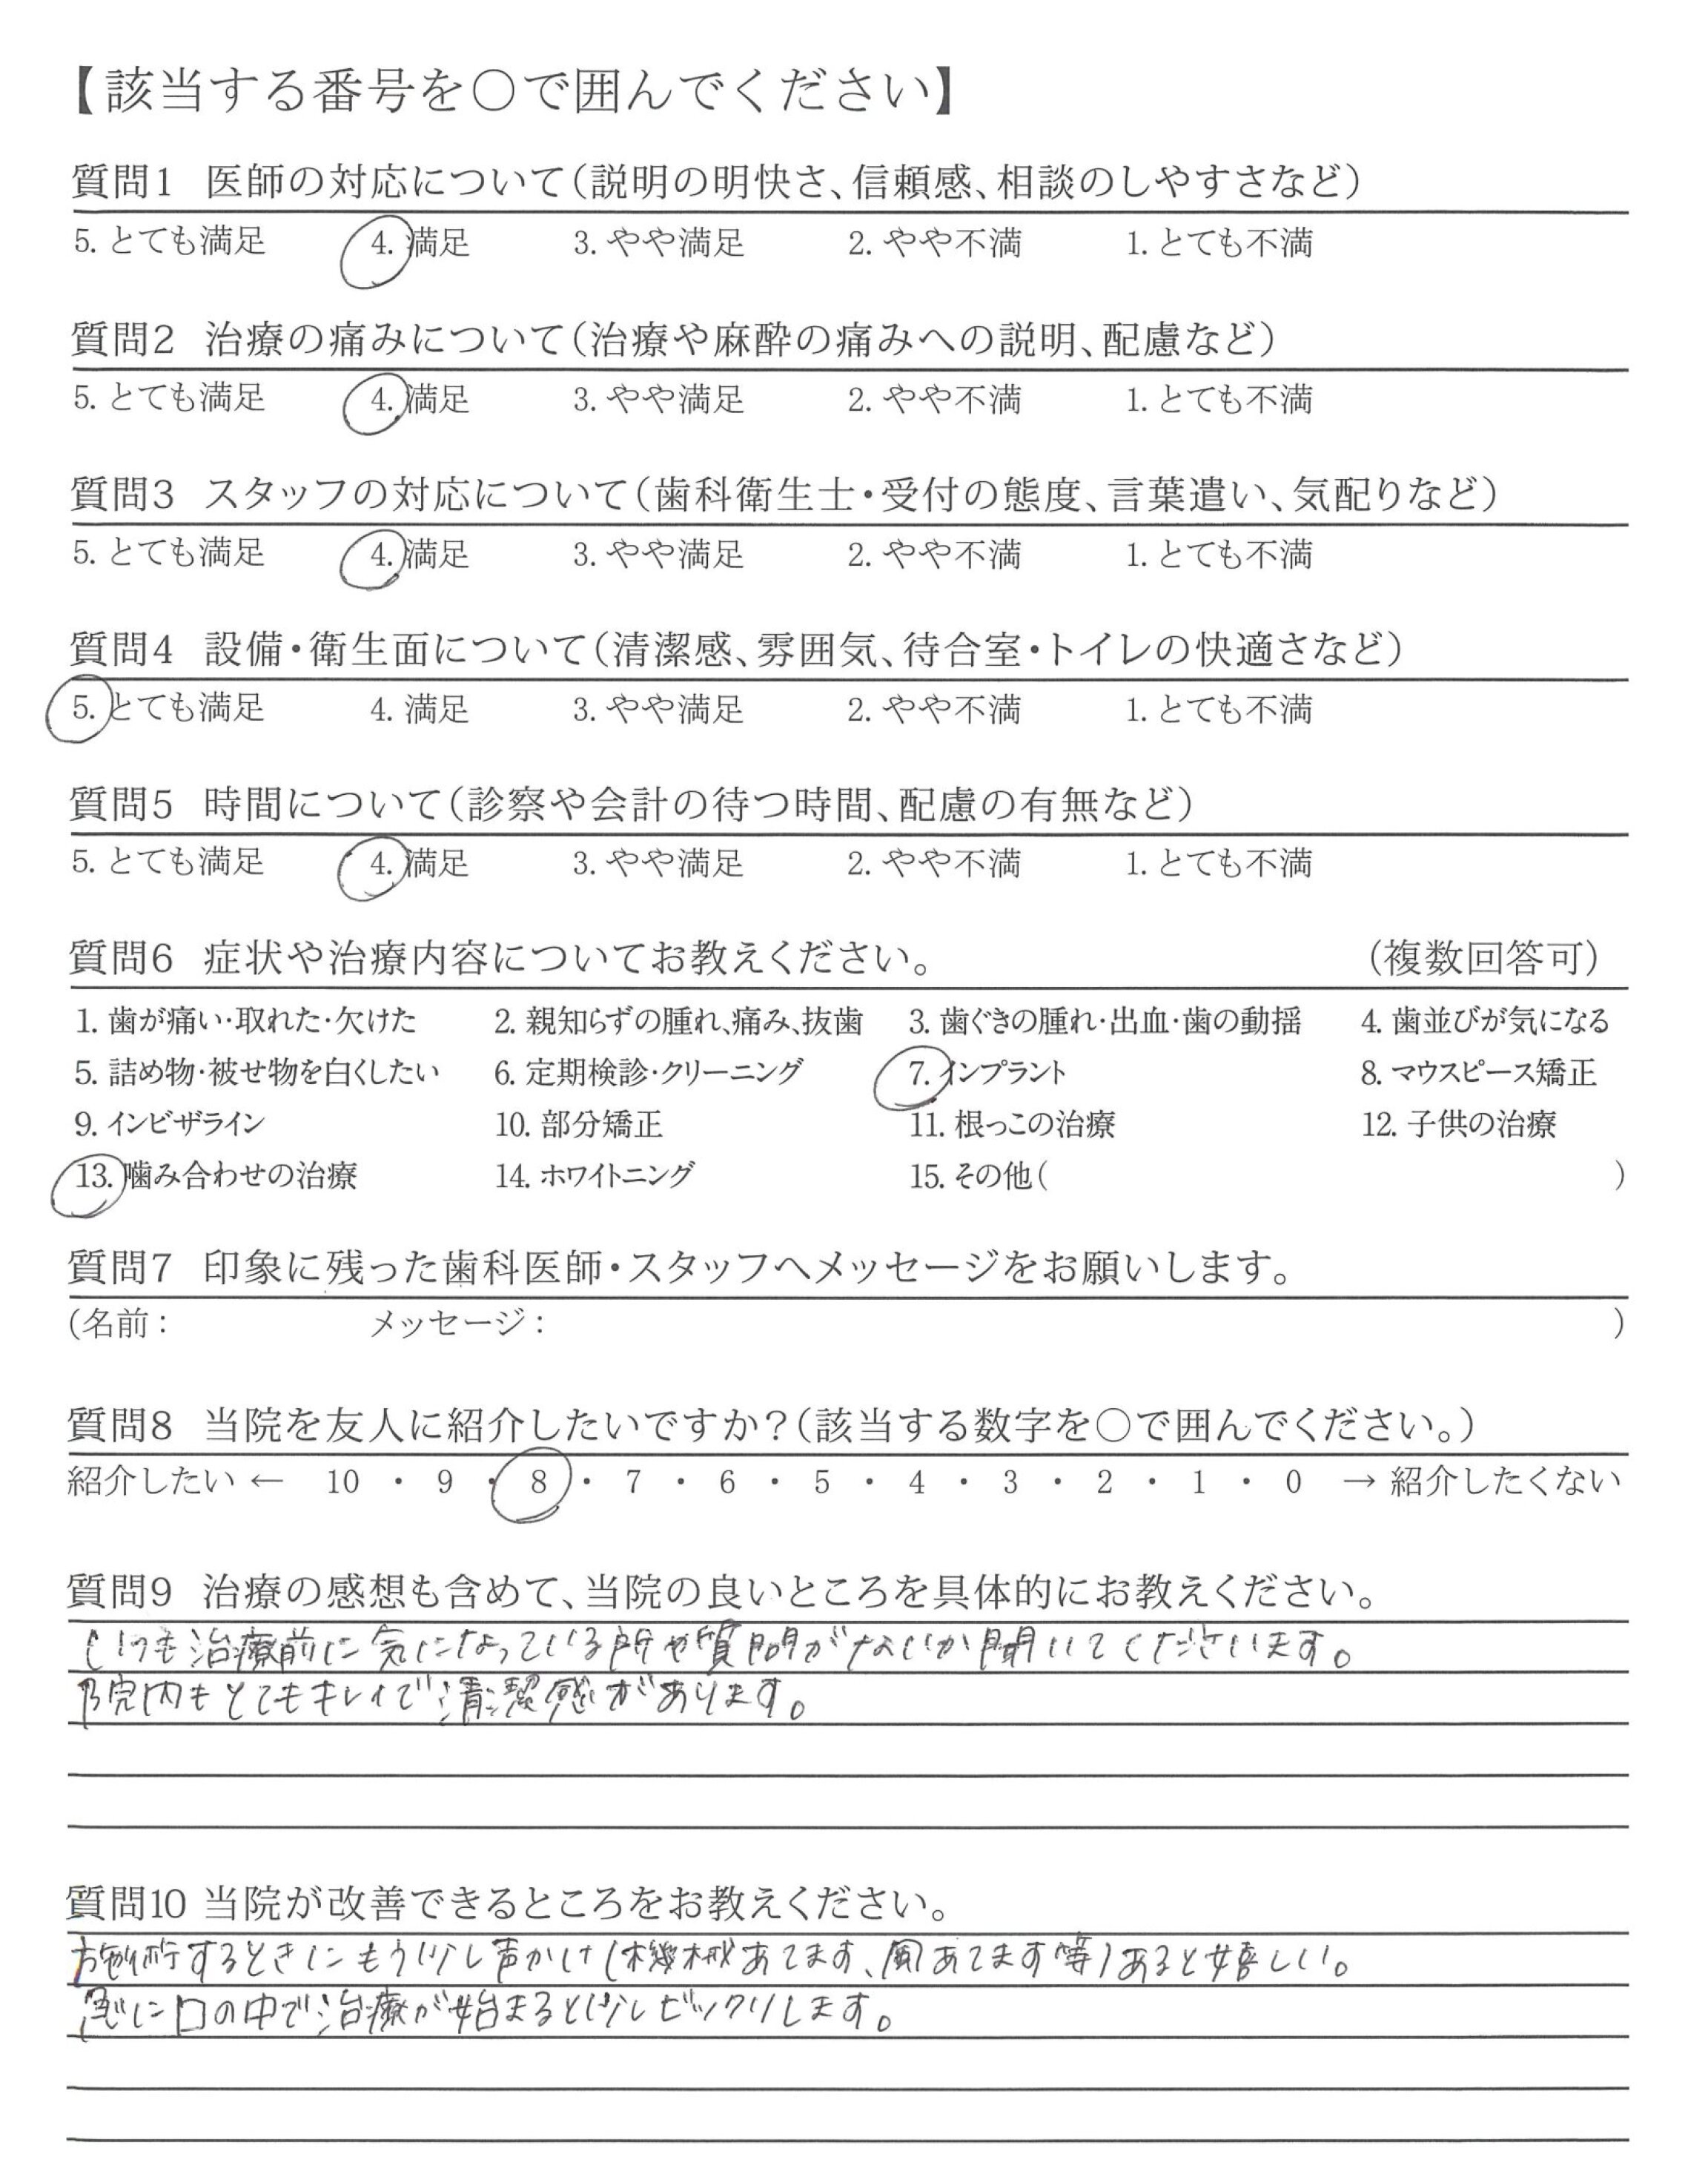 【該当する番号を〇で囲んでください】
質問1 医師の対応について(説明の明快さ、信頼感、相談のしやすさなど)
5. とても満足 4. 満足 3. やや満足 2. やや不満 1. とても不満
質問2 治療の痛みについて(治療や麻酔の痛みへの説明、配慮など)
5. とても満足 4. 満足 3. やや満足 2. やや不満 1. とても不満
質問3 スタッフの対応について(歯科衛生士・受付の態度、言葉遣い、気配りなど)
5. とても満足 4. 満足 3. やや満足 2. やや不満 1. とても不満
質問4 設備・衛生面について(清潔感、雰囲気、待合室・トイレの快適さなど)
5. とても満足 4. 満足 3. やや満足 2. やや不満 1. とても不満
質問5 時間について(診察や会計の待つ時間、配慮の有無など)
5. とても満足 4. 満足 3. やや満足 2. やや不満 1. とても不満
質問6 症状や治療内容についてお教えください。 (複数回答可)
1. 歯が痛い・取れた・欠けた 2. 親知らずの腫れ、痛み、抜歯 3. 歯ぐきの腫れ・出血・歯の動揺 4. 歯並びが気になる
5. 詰め物・被せ物を白くしたい 6. 定期検診・クリーニング 7. インプラント 8. マウスピース矯正
9. インビザライン 10. 部分矯正 11. 根っこの治療 12. 子供の治療
13. 噛み合わせの治療 14. ホワイトニング 15. その他( )
質問7 印象に残った歯科医師・スタッフへメッセージをお願いします。
(名前: メッセージ: )
質問8 当院を友人に紹介したいですか?(該当する数字を〇で囲んでください。)
紹介したい ← 10 ・ 9 ・ 8 ・ 7 ・ 6 ・ 5 ・ 4 ・ 3 ・ 2 ・ 1 ・ 0 → 紹介したくない
質問9 治療の感想も含めて、当院の良いところを具体的にお教えください。
いつも治療前に気になっている所や質問がないか聞いてくださいます。
院内もとてもキレイで清潔感があります。
質問10 当院が改善できるところをお教えください。
施術するときにもう少し声かけ(機械あてます、風あてます等)あると嬉しい。
急に口の中で治療が始まると少しビックリします。